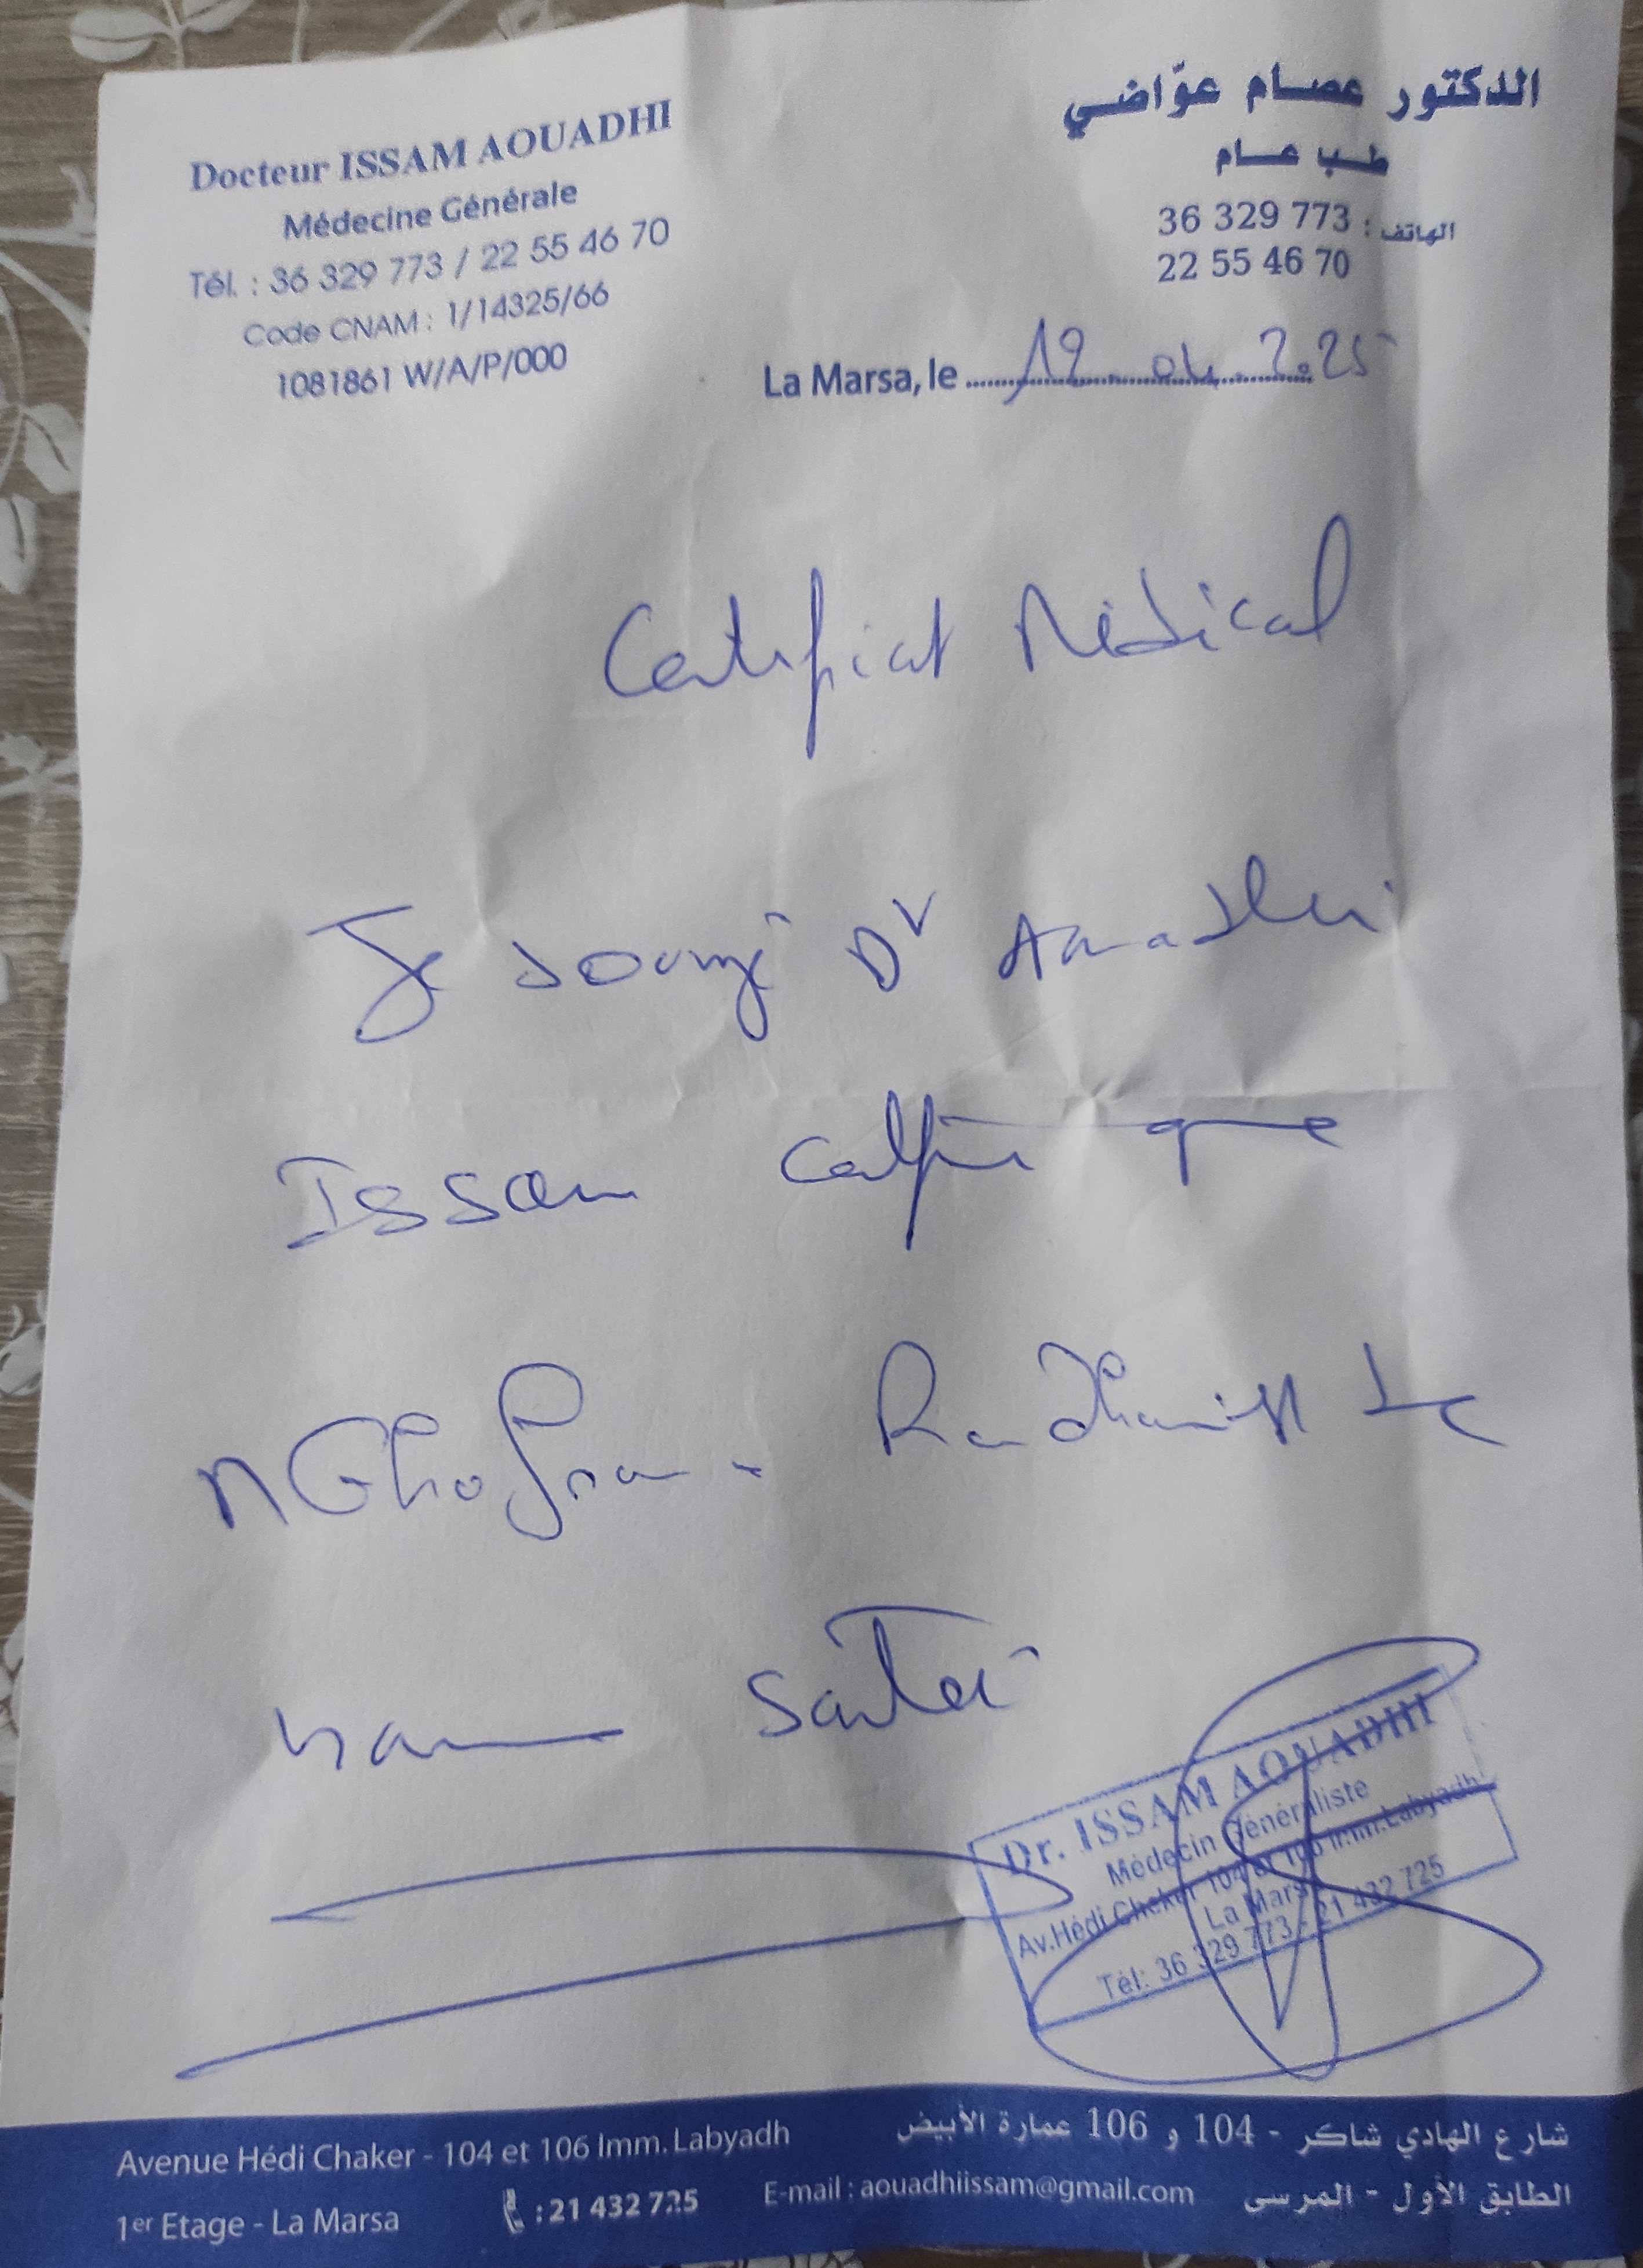 Docteur ISSAM AOUADHI
Médecine Générale
Tél. : 36 329 773 / 22 55 46 70
Code CNAM : 1/14325/66
1081861 W/A/P/000
الدكتور عصام عوّاضي
طب عام
الهاتف : 36 329 773
22 55 46 70
La Marsa, le 19.04.2025
Certificat Médical
Je sousigné Dr Aouadhi
Issam certifie que
Ghofrane
Santé
Dr. ISSAM AOUADHI
Médecin Généraliste
Av.Hédi Cheker 104 et 106 Imm.Labyadh
La Marsa
Tél: 36 329 773 - 21 432 725
Avenue Hédi Chaker - 104 et 106 Imm. Labyadh
1er Etage - La Marsa : 21 432 725 E-mail : aouadhiissam@gmail.com
شارع الهادي شاكر - 104 و 106 عمارة الأبيض
الطابق الأول - المرسى